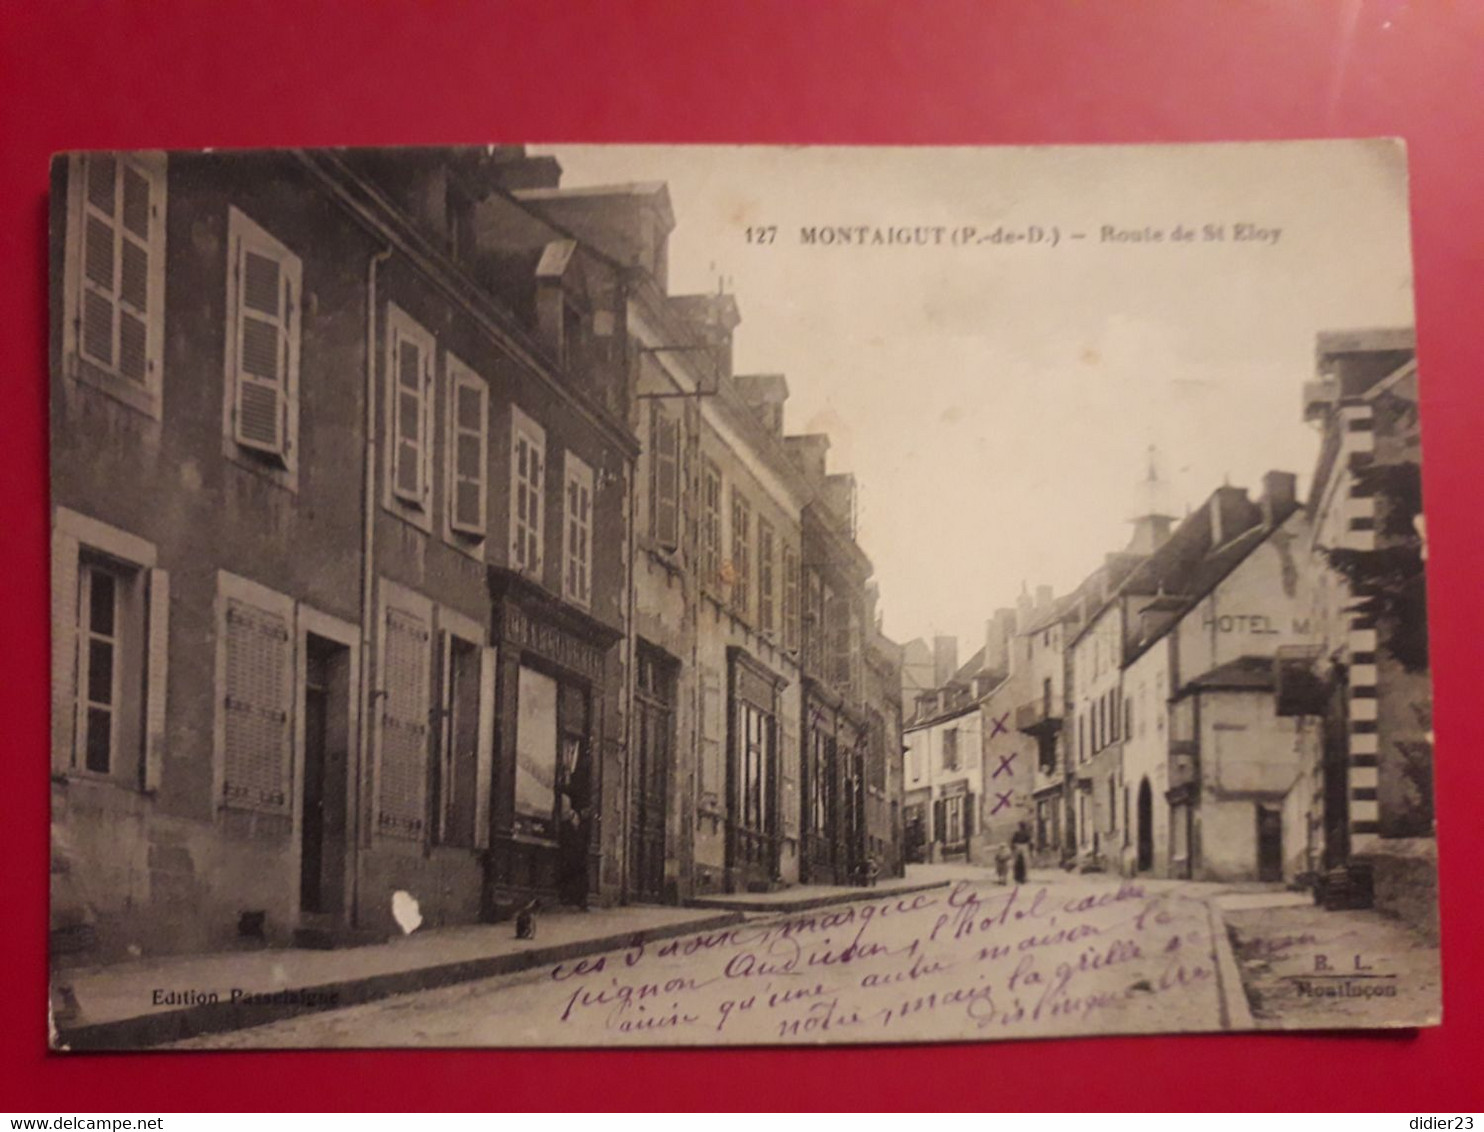 127 MONTAIGUT (P.-de-D.) - Route de St Eloy
HOTEL M
X
X
X
ces 3 croix, marque le
pignon Audieau, l'hotel, cache
ainsi qu'une autre maison le
nôtre, mais la grille se
distingue
Edition Passelaigne
B. L.
Montluçon
www.delcampe.net
didier23